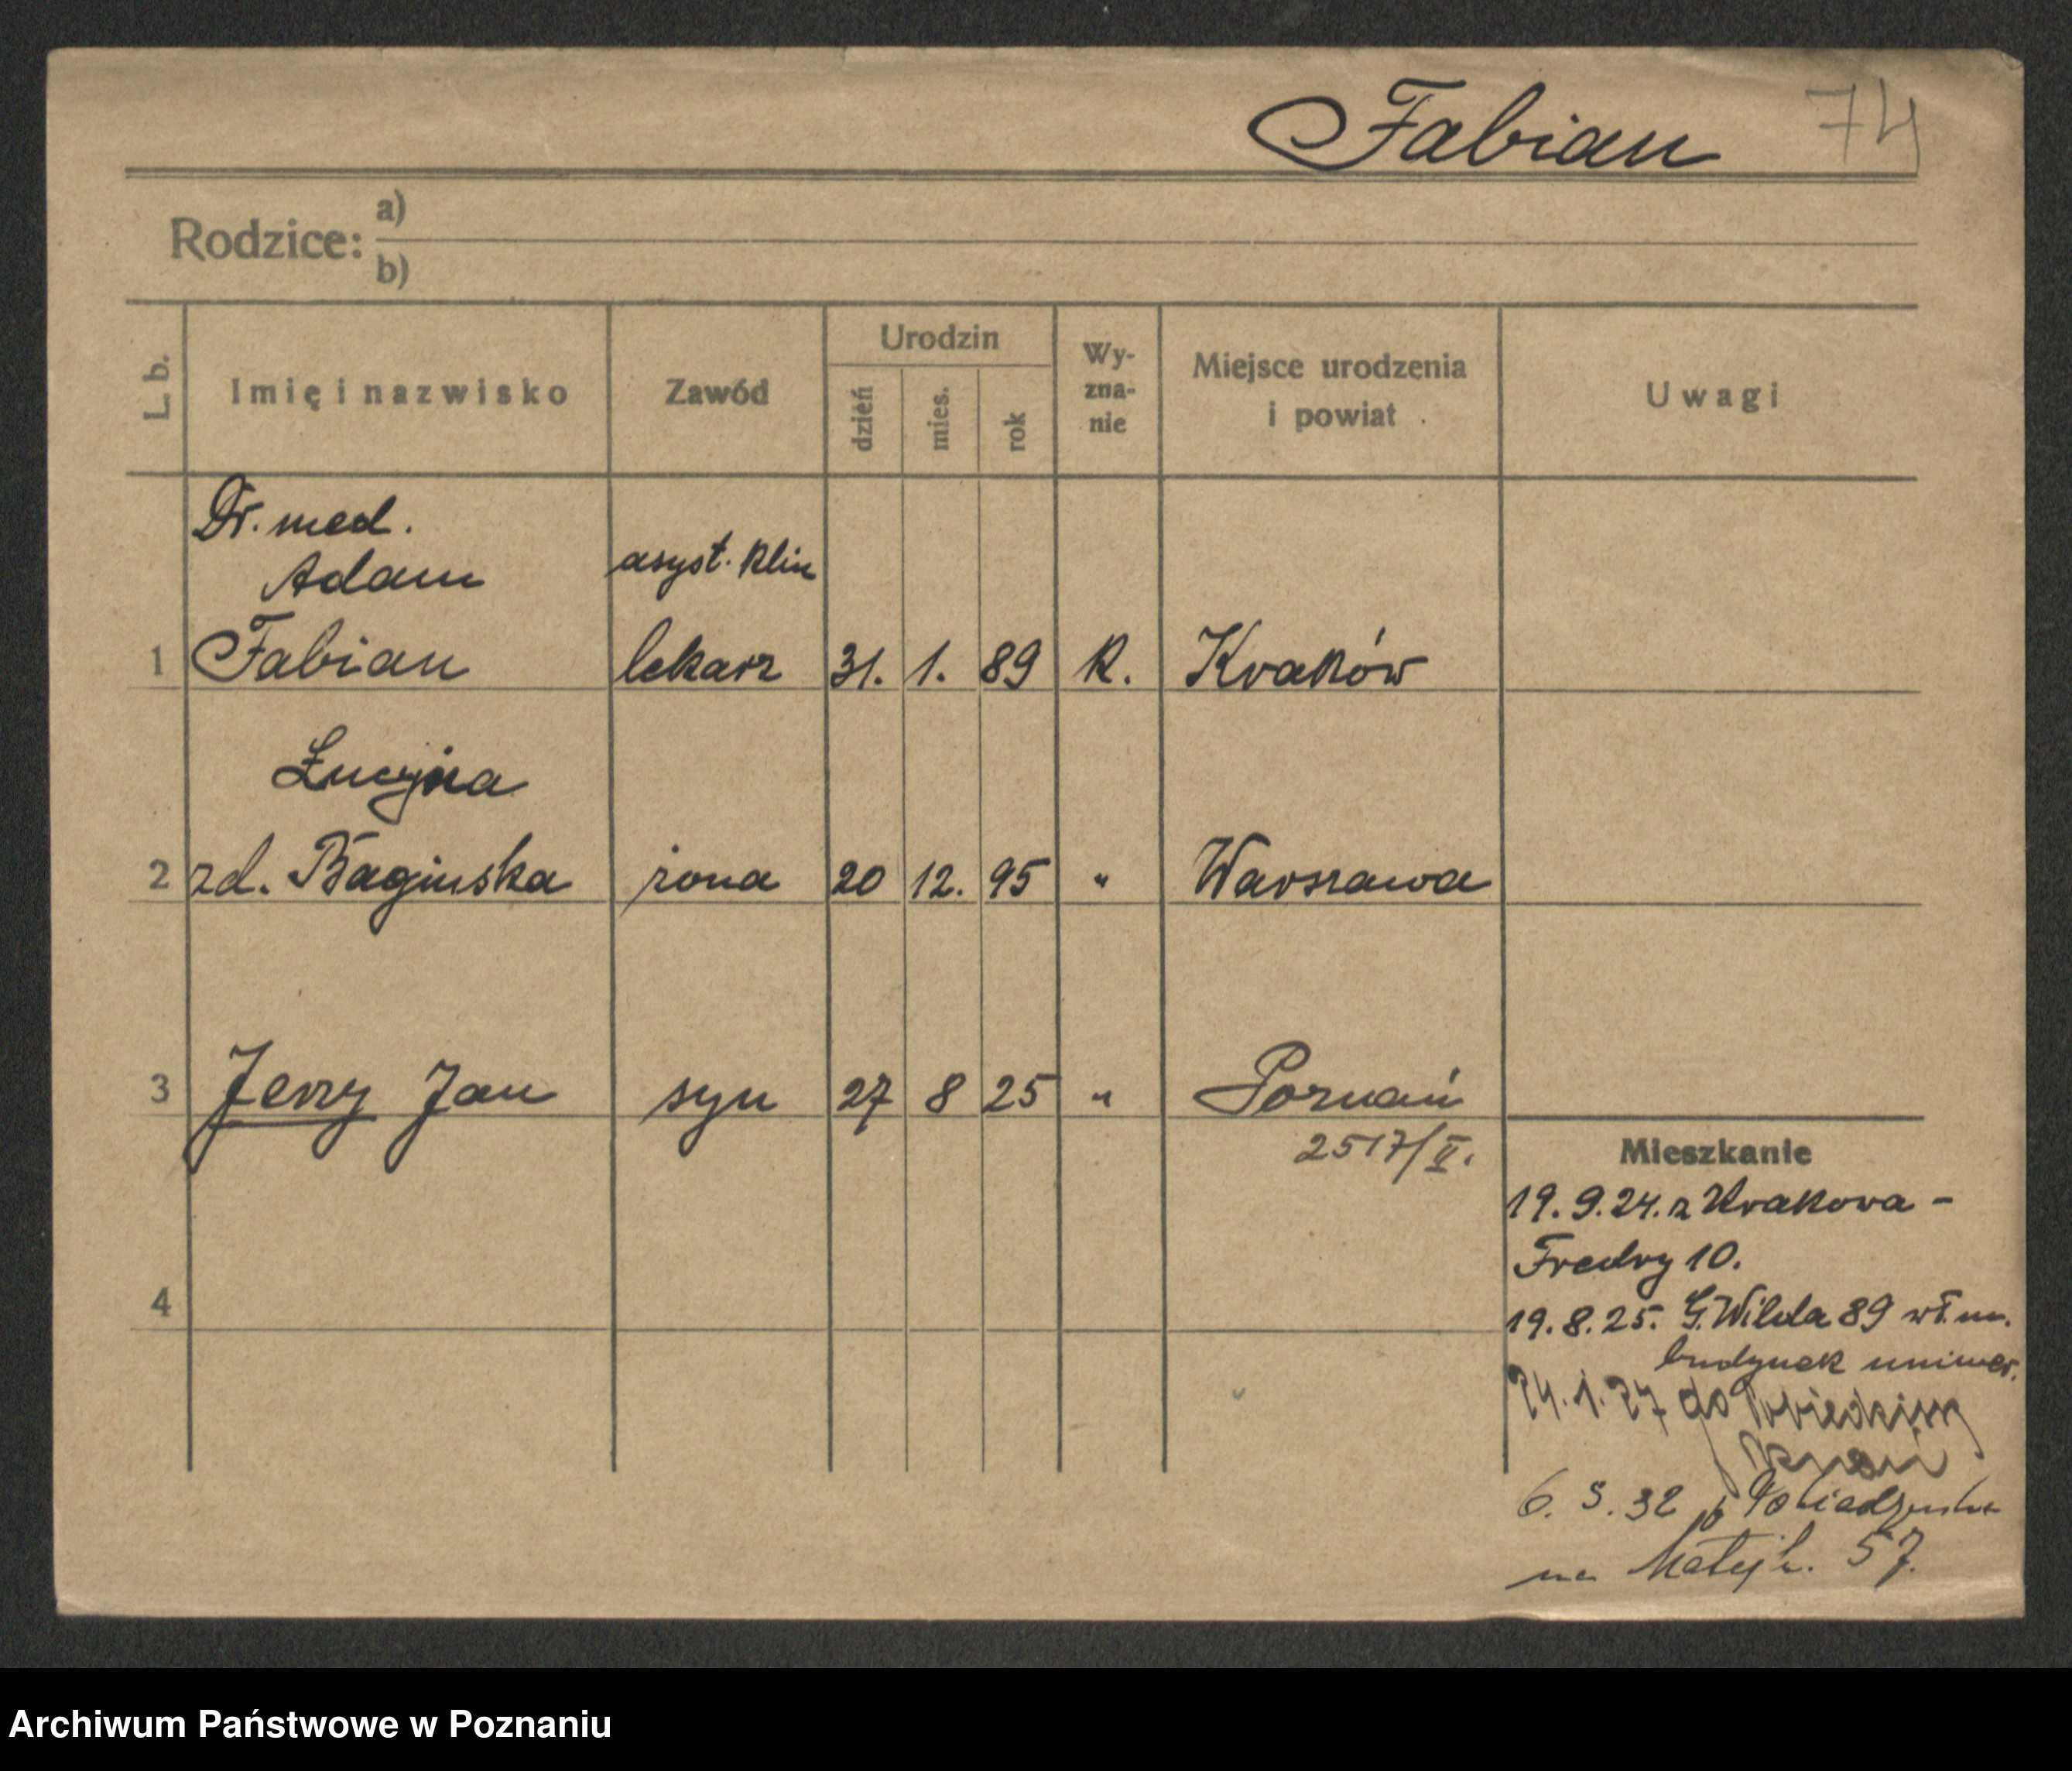 Fabian 74
Rodzice:
a)
b)
L. b.
Imię i nazwisko
Zawód
Urodzin
dzień
mies.
rok
Wy-
zna-
nie
Miejsce urodzenia
i powiat
Uwagi
Dr. med.
Adam asyst. klin
1 Fabian lekarz 31. 1. 89 K. Kraków
Łucyna
2 zd. Baginska żona 20 12. 95 " Warszawa
3 Jerzy Jan syn 27 8 25 " Poznań
2517/II.
Mieszkanie
19. 9. 24. z Krakowa -
Fredry 10.
4
19. 8. 25. G. Wilda 89 wł. m.
budynek uniwer.
24. 1. 27 do Pobiedzisk
6. 5. 32
na Matejk. 57.
Archiwum Państwowe w Poznaniu